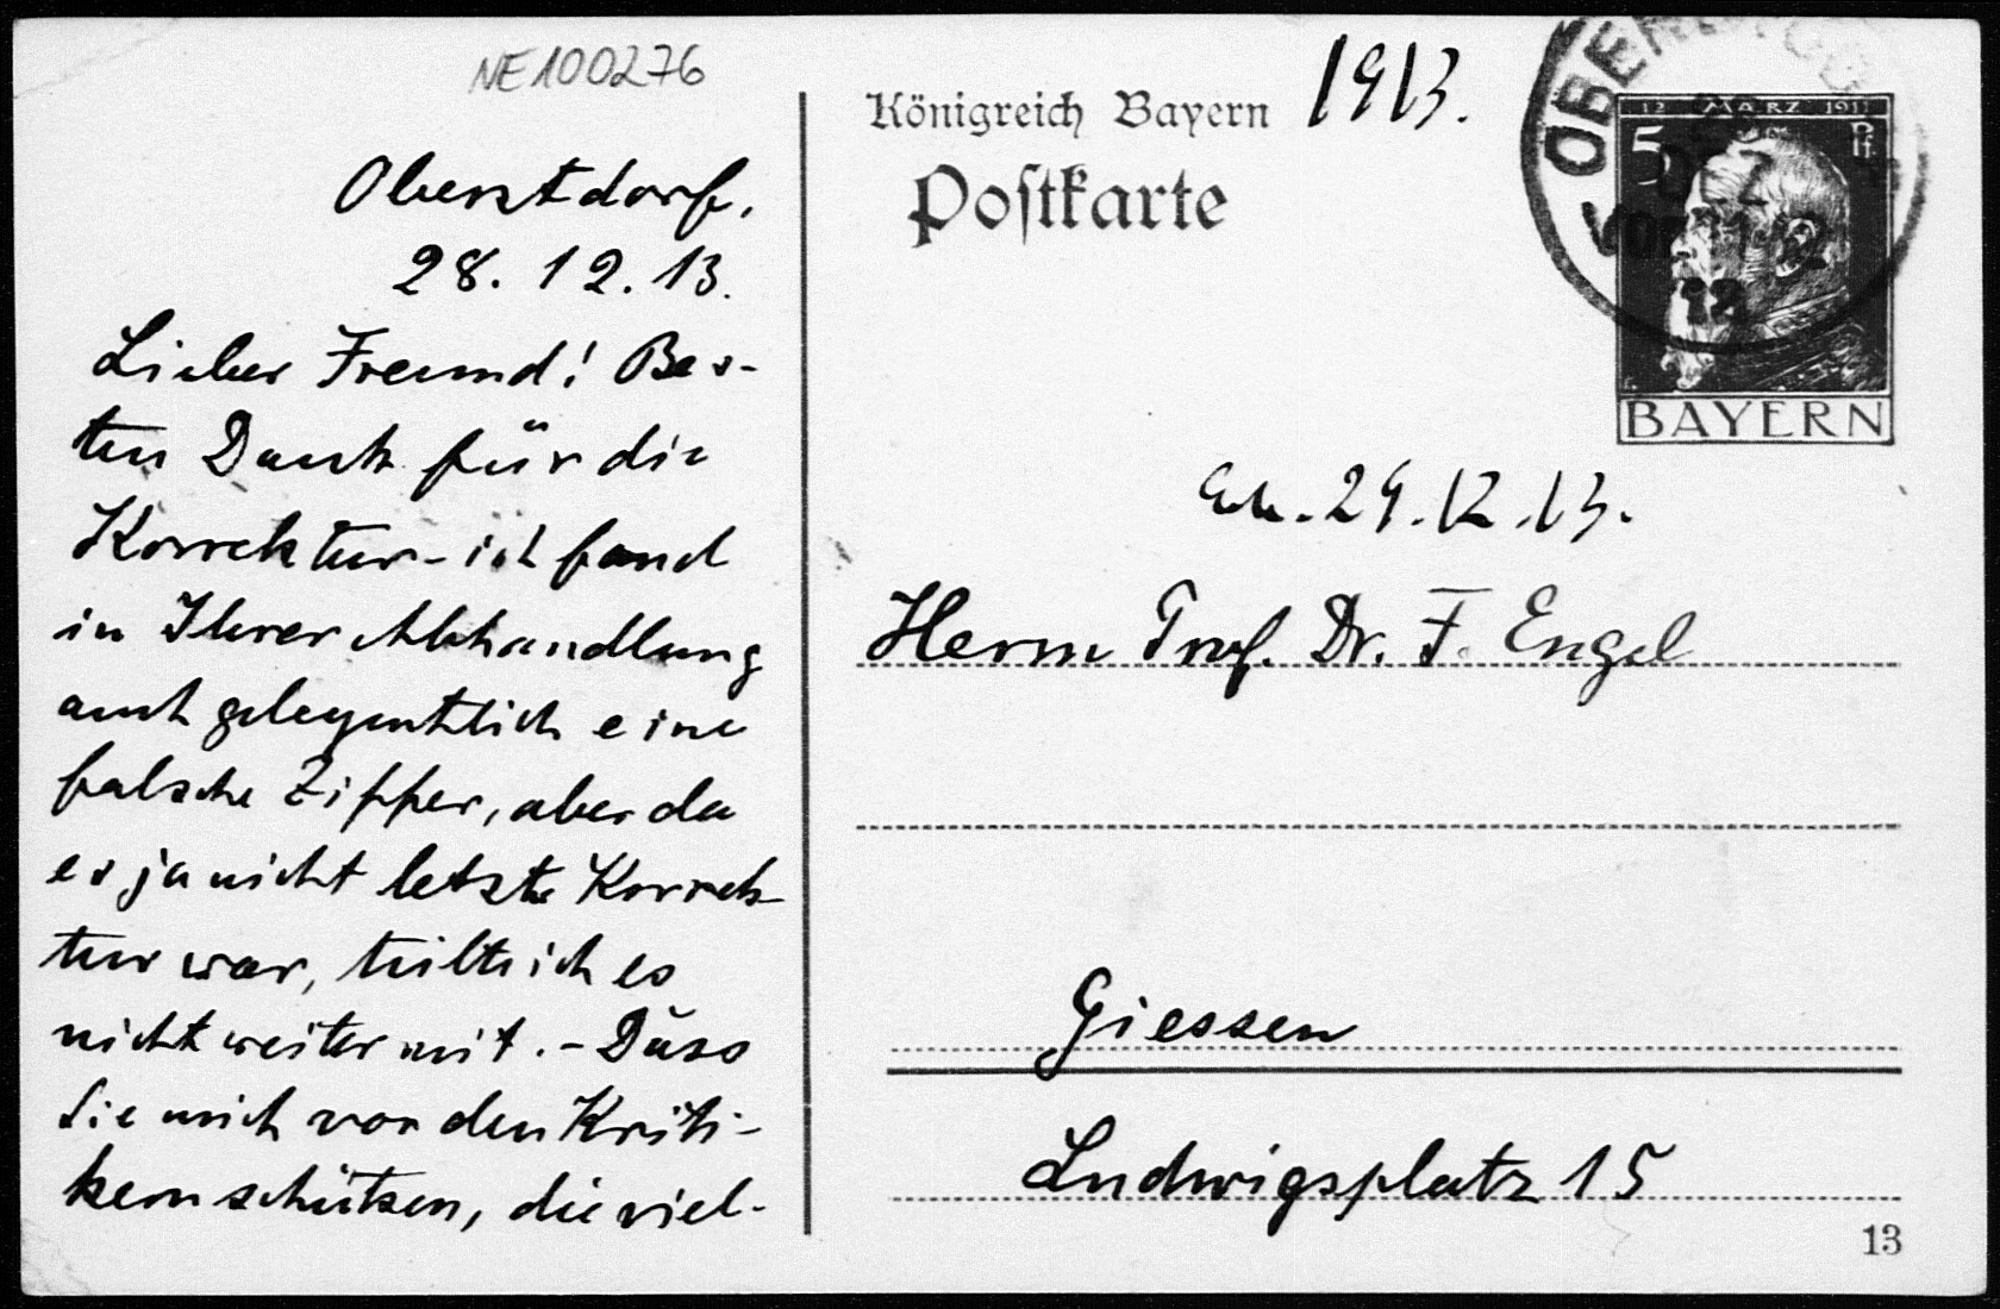 NE100276
Oberstdorf,
28.12.13.
Lieber Freund! Bes-
ten Dank für die
Korrektur - ich fand
in Ihrer Abhandlung
auch gelegentlich eine
falsche Ziffer, aber da
es ja nicht letzte Korrek-
tur war, teilte ich es
nicht weiter mit. - Dass
Sie mich vor den Kriti-
kern schützen, die viel-
Königreich Bayern 1913.
Postkarte
12 MÄRZ 1911
5 Pf.
BAYERN
12
29.12.13.
Herrn Prof. Dr. F. Engel
Giessen
Ludwigsplatz 15
13